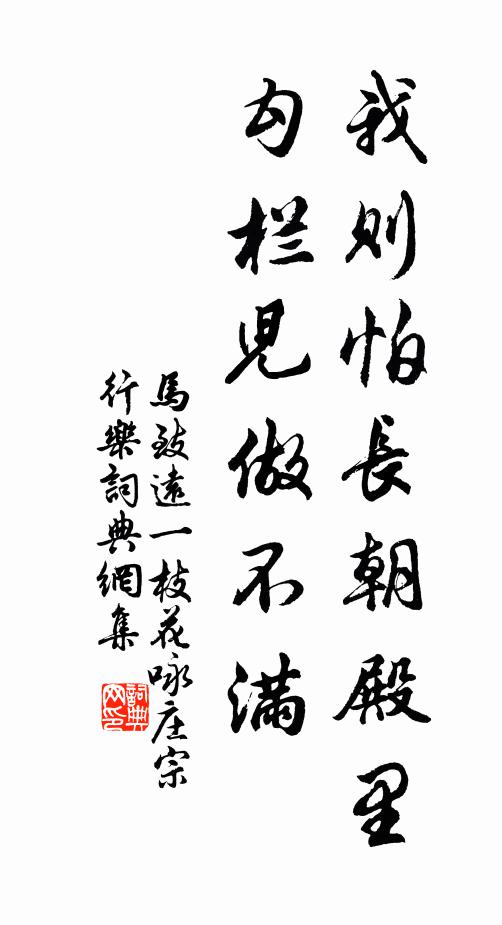 我则怕長朝殿里
勾栏児做不满
馬致遠一枝花咏庄宗
行樂詞典網集
詞典
网印